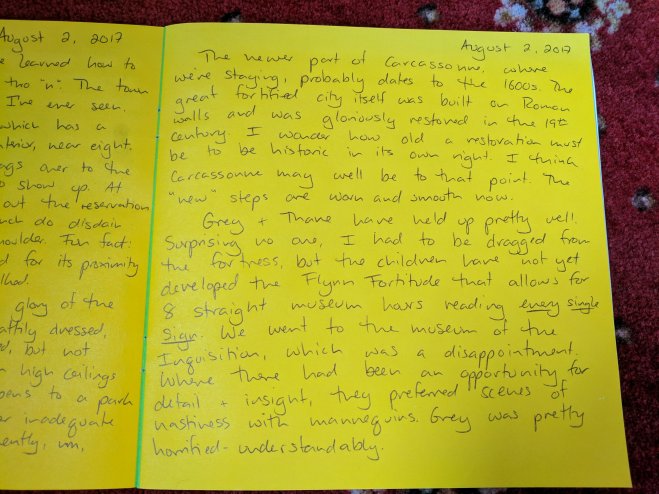 August 2, 2017
e learned how to
two "n". The town
I've ever seen.
which has a
nterior, near eight.
ags over to the
o show up. At
out the reservation
uch do disdain
houlder. Fun fact:
d for its proximity
lhad.
glory of the
aftily dressed,
ed, but not
n high ceilings
pens to a park
or inadequate
ently, um,
August 2, 2017
The newer part of Carcassonne, where
we're staying, probably dates to the 1600s. The
great fortified city itself was built on Roman
walls and was gloriously restored in the 19th
century. I wonder how old a restoration must
be to be historic in its own right. I think
Carcassonne may well be to that point. The
"new" steps are worn and smooth now.
Grey + Thane have held up pretty well.
Surprising no one, I had to be dragged from
the fortress, but the children have not yet
developed the Flynn Fortitude that allows for
8 straight museum hours reading every single
sign. We went to the museum of the
Inquisition, which was a disappointment.
Where there had been an opportunity for
detail + insight, they preferred scenes of
nastiness with mannequins. Grey was pretty
horrified - understandably.